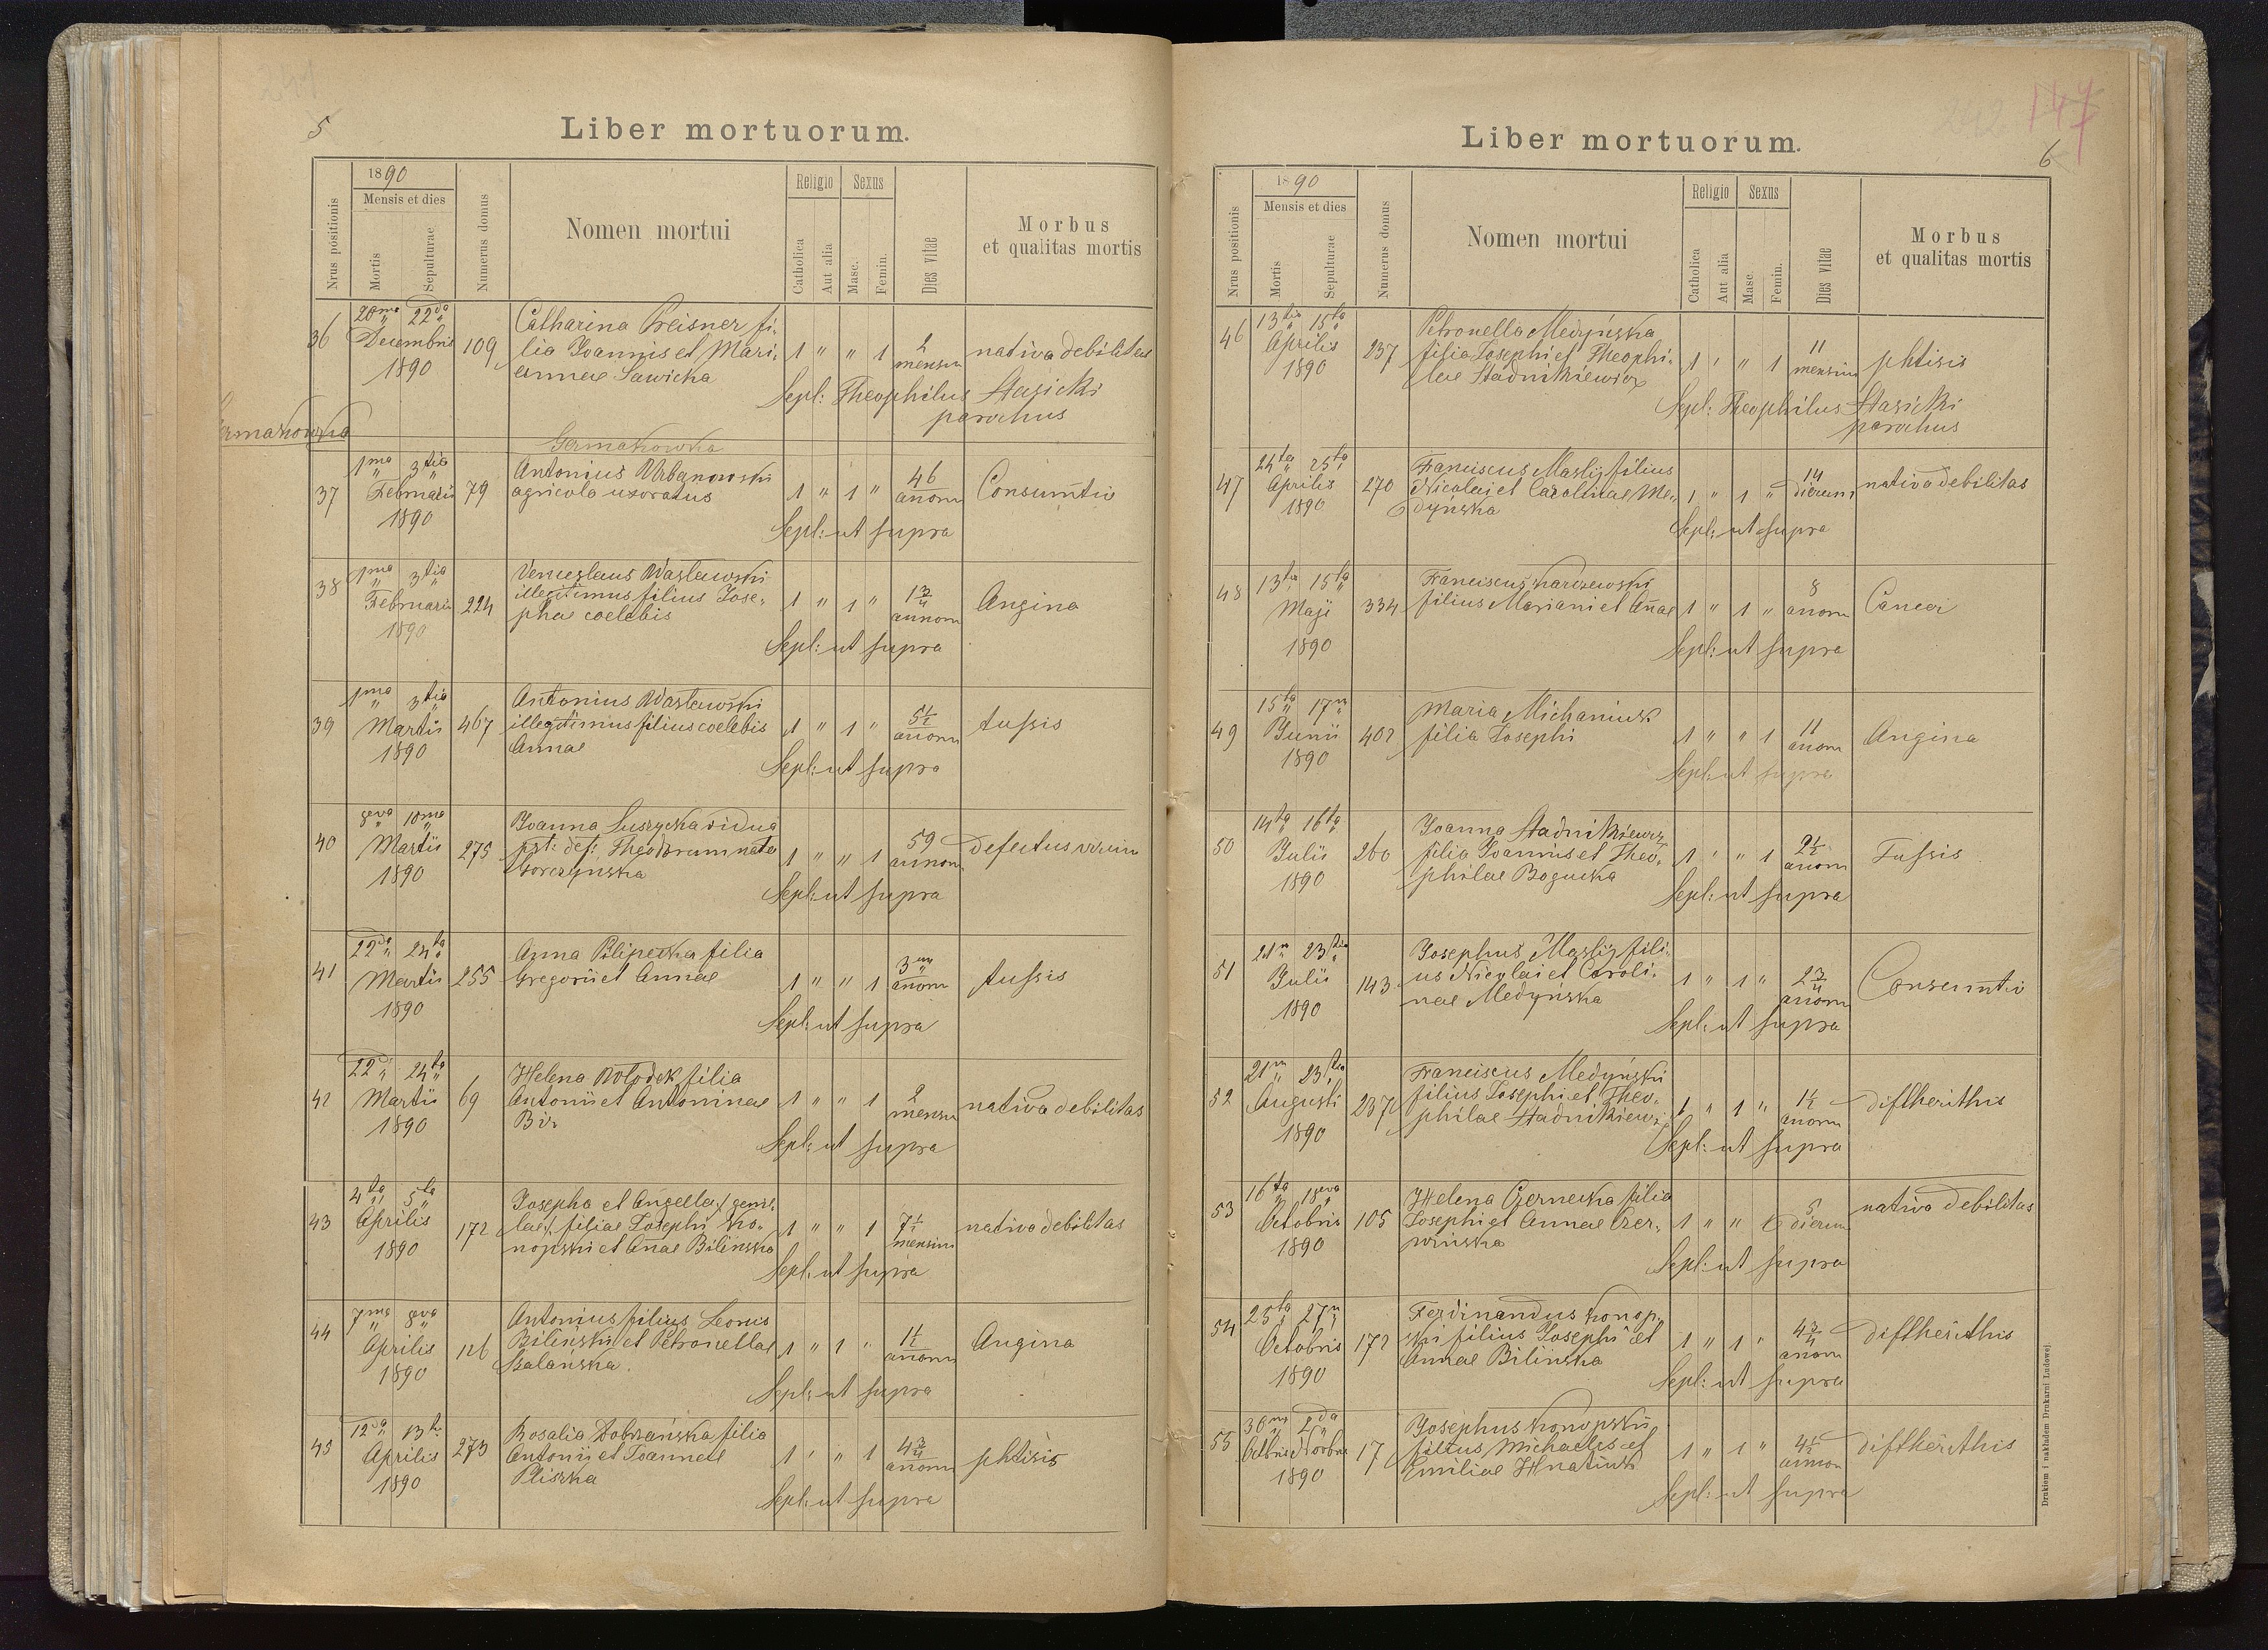 5
Liber mortuorum.
Nrus positionis
1890
Mensis et dies
Mortis
Sepulturae
Numerus domus
Nomen mortui
Religio
Catholica
Aut alia
Sexus
Masc.
Femin.
Dies vitae
Morbus
et qualitas mortis
36
20ma 22da
Decembris
1890
109
Catharina Preisner fi-
lia Joannis et Mari-
annae Sawicka
1 " " 1
2
mensium
nativa debilitas
Sepl: Theophilus Stasicki
parochus
Germakowka
37
1ma 3tia
Februarii
1890
79
Antonius Urbanowski
agricola uxoratus
1 " 1 "
46
annorum
Consumtio
Sepl: ut supra
38
1ma 3tia
Februarii
1890
224
Venceslaus Wasławski
illegitimus filius Jose-
phae coelebis
1 " 1 "
1 3/4
annorum
Angina
Sepl: ut supra
39
1ma 3tia
Martii
1890
467
Antonius Wasławski
illegitimus filius coelebis
Annae
1 " 1 "
5 1/2
annorum
tussis
Sepl: ut supra
40
8va 10ma
Martii
1890
275
Joanna Suszycka vidua
pst: def: Theodorum nata
Gorczynska
1 " " 1
59
annorum
defectus virium
Sepl: ut supra
41
22da 24ta
Martii
1890
255
Anna Pilipecka filia
Gregorii et Annae
1 " " 1
3
annorum
tussis
Sepl: ut supra
42
22da 24ta
Martii
1890
69
Helena Wołodek filia
Antonii et Antoninae
Bir
1 " " 1
2
mensium
nativa debilitas
Sepl: ut supra
43
4ta 5ta
Aprilis
1890
172
Josepha et Angella gemel-
lae filiae Josephi Ko-
nopski et Annae Bilinska
1 " " 1
7 1/2
mensium
nativa debilitas
Sepl: ut supra
44
7ma 8va
Aprilis
1890
126
Antonius filius Leonis
Bilinski et Petronellae
Szalańska.
1 " 1 "
1 1/2
annorum
Angina
Sepl: ut supra
45
12da 13tia
Aprilis
1890
273
Rosalia Dobrzańska filia
Antonii et Joannae
Pliszka
1 " " 1
4 3/4
annorum
phtisis
Sepl: ut supra
147
6
Liber mortuorum.
Nrus positionis
1890
Mensis et dies
Mortis
Sepulturae
Numerus domus
Nomen mortui
Religio
Catholica
Aut alia
Sexus
Masc.
Femin.
Dies vitae
Morbus
et qualitas mortis
46
13tia 15ta
Aprilis
1890
237
Petronella Medyńska
filia Josephi et Theophi-
lae Stadnikiewicz
1 " " 1
11
mensium
phtisis
Sepl: Theophilus Stasicki
parochus
47
24ta 25ta
Aprilis
1890
270
Franciscus Maslij filius
Nicolai et Carolinae Me-
dyńska
1 " 1 "
14
dierum
nativa debilitas
Sepl: ut supra
48
13tia 15ta
Maji
1890
334
Franciscus Karczewski
filius Mariani et Annae
1 " 1 "
8
annorum
Cancer
Sepl: ut supra
49
15ta 17m
Junii
1890
402
Maria Michaniuk
filia Josephi
1 " " 1
11
annorum
Angina
Sepl: ut supra
50
14ta 16ta
Julii
1890
260
Joanna Stadnikiewicz
filia Joannis et Theo-
philae Bogucka
1 " " 1
2 1/2
annorum
Tussis
Sepl: ut supra
51
21m 23tia
Julii
1890
143
Josephus Maslij fili-
us Nicolai et Caroli-
nae Medyńska
1 " 1 "
2 3/4
annorum
Consumtio
Sepl: ut supra
52
21m 23tia
Augusti
1890
237
Franciscus Medyński
filius Josephi et Theo-
philae Stadnikiewicz
1 " 1 "
1 1/2
annorum
diftherithis
Sepl: ut supra
53
16ta 18va
Octobris
1890
105
Helena Czernecka filia
Josephi et Annae Czer-
wińska
1 " " 1
5
dierum
nativa debilitas
Sepl: ut supra
54
25ta 27m
Octobris
1890
172
Ferdinandus Konop-
ski filius Josephi et
Annae Bilinska
1 " 1 "
4 3/4
annorum
diftherithis
Sepl: ut supra
55
30m 2da
Octbris Novbris
1890
17
Josephus Konopski
filius Michaelis et
Emiliae Hnatiuk
1 " 1 "
4 1/2
annorum
diftherithis
Sepl: ut supra
Drukiem i nakładem Drukarni Ludowej